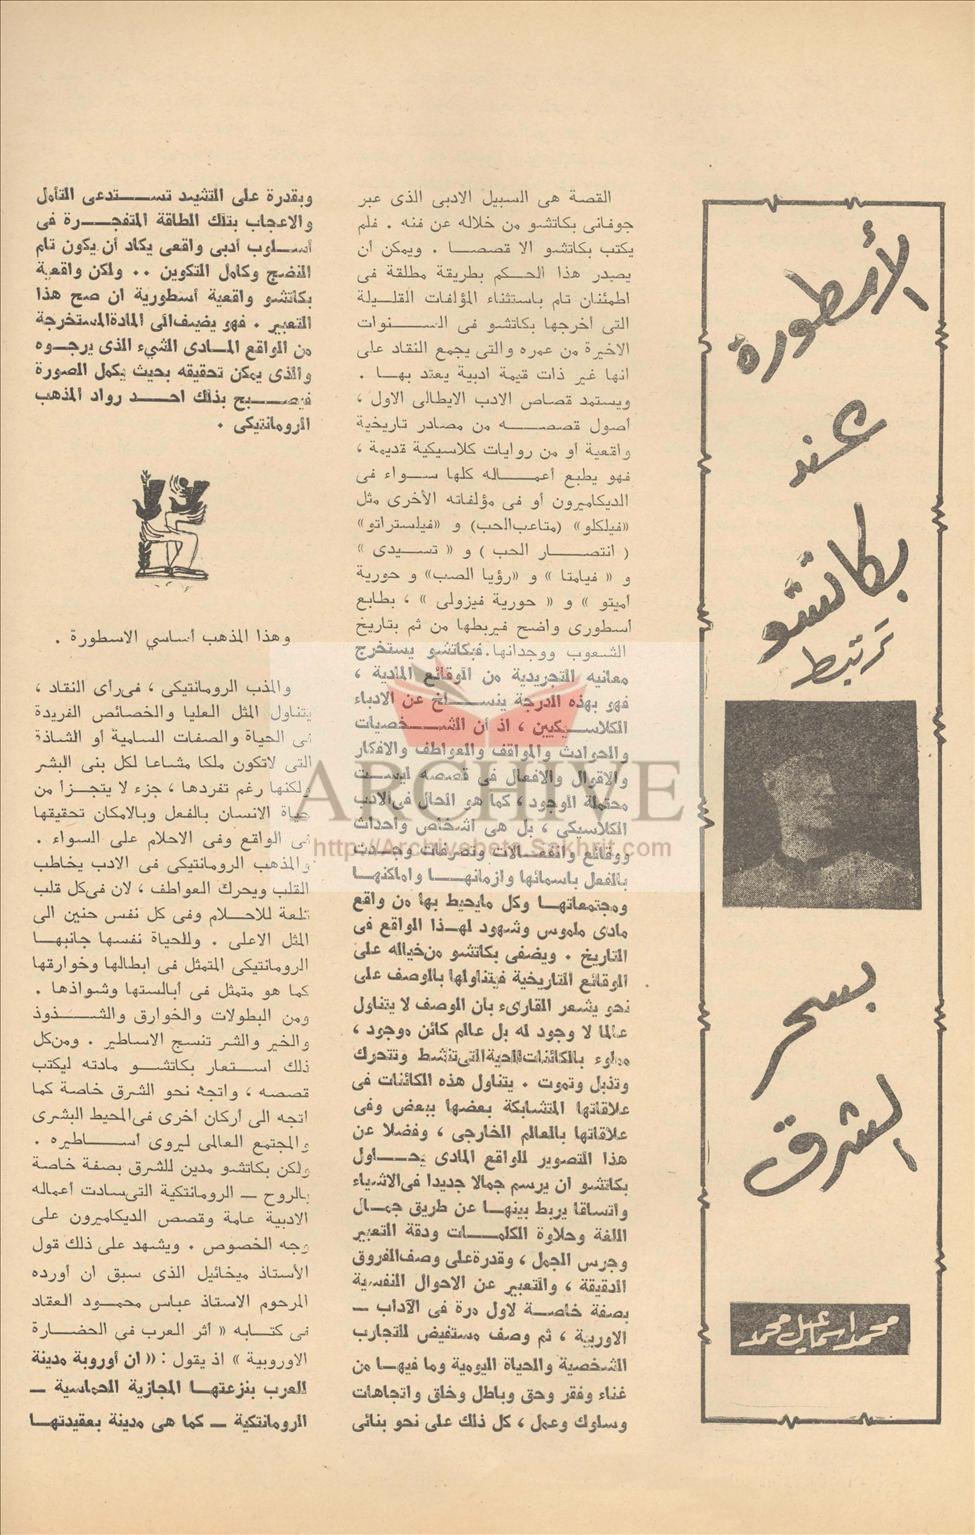 الأسطورة
عند
بكاتشو
ترتبط
بسحر
الشرق
محمد اسماعيل محمد
القصة هى السبيل الادبى الذى عبر
جوفانى بكاتشو من خلاله عن فنه . فلم
يكتب بكاتشو الا قصصا . ويمكن أن
يصدر هذا الحكم بطريقة مطلقة فى
اطمئنان تام باستثناء المؤلفات القليلة
التى أخرجها بكاتشو فى السنوات
الاخيرة من عمره والتى يجمع النقاد على
انها غير ذات قيمة ادبية يعتد بها .
ويستمد قصاص الادب الايطالى الاول ،
أصول قصصه من مصادر تاريخية
واقعية أو من روايات كلاسيكية قديمة ،
فهو يطبع أعماله كلها سواء فى
الديكاميرون أو فى مؤلفاته الأخرى مثل
«فيلكلو» (متاعب الحب) و «فيلستراتو»
( انتصار الحب ) و « تسيدى »
و « فيامتا » و «رؤيا الصب» و حورية
أميتو » و « حورية فيزولى » ، بطابع
أسطورى واضح فيربطها من ثم بتاريخ
الشعوب ووجدانها . فبكاتشو يستخرج
معانيه التجريدية من الوقائع المادية ،
فهو بهذه الدرجة ينسلخ عن الادباء
الكلاسيكيين ، اذ أن الشخصيات
والحوادث والمواقف والعواطف والافكار
والاقوال والافعال فى قصصه ليست
محتملة الوجود ، كما هو الحال فى الادب
الكلاسيكى ، بل هى أشخاص وأحداث
ووقائع وانفعالات وتصرفات وجدت
بالفعل باسمائها وازمانها واماكنها
ومجتمعاتها وكل مايحيط بها من واقع
مادى ملموس وشهود لهذا الواقع فى
التاريخ . ويضفى بكاتشو من خياله على
الوقائع التاريخية فيتناولها بالوصف على
نحو يشعر القارىء بان الوصف لا يتناول
عالما لا وجود له بل عالم كائن موجود ،
مملوء بالكائنات الحية التى تنشط وتتحرك
وتذبل وتموت . يتناول هذه الكائنات فى
علاقاتها المتشابكة بعضها ببعض وفى
علاقاتها بالعالم الخارجى ، وفضلا عن
هذا التصوير للواقع المادى يحاول
بكاتشو ان يرسم جمالا جديدا فى الاشياء
واتساقا يربط بينها عن طريق جمال
اللغة وحلاوة الكلمات ودقة التعبير
وجرس الجمل ، وقدرة على وصف الفروق
الدقيقة ، والتعبير عن الاحوال النفسية
بصفة خاصة لاول مرة فى الآداب ـــ
الاوربية ، ثم وصف مستفيض للتجارب
الشخصية والحياة اليومية وما فيها من
غناء وفقر وحق وباطل وخلق واتجاهات
وسلوك وعمل ، كل ذلك على نحو بنائى
وبقدرة على التشيد تستدعى التأمل
والاعجاب بتلك الطاقة المتفجرة فى
أسلوب أدبى واقعى يكاد أن يكون تام
النضج وكامل التكوين .. ولكن واقعية
بكاتشو واقعية أسطورية ان صح هذا
التعبير . فهو يضيف الى المادة المستخرجة
من الواقع المادى الشىء الذى يرجوه
والذى يمكن تحقيقه بحيث يكمل الصورة
فيصبح بذلك احد رواد المذهب
الرومانتيكى .
وهذا المذهب أساسى الاسطورة .
والمذب الرومانتيكى ، فى رأى النقاد ،
يتناول المثل العليا والخصائص الفريدة
فى الحياة والصفات السامية أو الشاذة
التى لاتكون ملكا مشاعا لكل بنى البشر
ولكنها رغم تفردها ، جزء لا يتجزأ من
حياة الانسان بالفعل وبالامكان تحقيقها
فى الواقع وفى الاحلام على السواء .
والمذهب الرومانتيكى فى الادب يخاطب
القلب ويحرك العواطف ، لان فى كل قلب
تلعة للاحلام وفى كل نفس حنين الى
المثل الاعلى . وللحياة نفسها جانبها
الرومانتيكى المتمثل فى ابطالها وخوارقها
كما هو متمثل فى أبالستها وشواذها .
ومن البطولات والخوارق والشذوذ
والخير والشر تنسج الاساطير . ومن كل
ذلك استعار بكاتشو مادته ليكتب
قصصه ، واتجه نحو الشرق خاصة كما
اتجه الى أركان أخرى فى المحيط البشرى
والمجتمع العالمى ليروى أساطيره .
ولكن بكاتشو مدين للشرق بصفة خاصة
بالروح ـــ الرومانتكية التى سادت أعماله
الادبية عامة وقصص الديكاميرون على
وجه الخصوص . ويشهد على ذلك قول
الأستاذ ميخائيل الذى سبق ان أورده
المرحوم الاستاذ عباس محمود العقاد
فى كتابه « أثر العرب فى الحضارة
الاوروبية » اذ يقول : « ان أوروبة مدينة
للعرب بنزعتها المجازية الحماسية ـــ
الرومانتكية ـــ كما هى مدينة بعقيدتها
ARCHIVE
http://Archivebeta.Sakhrit.com